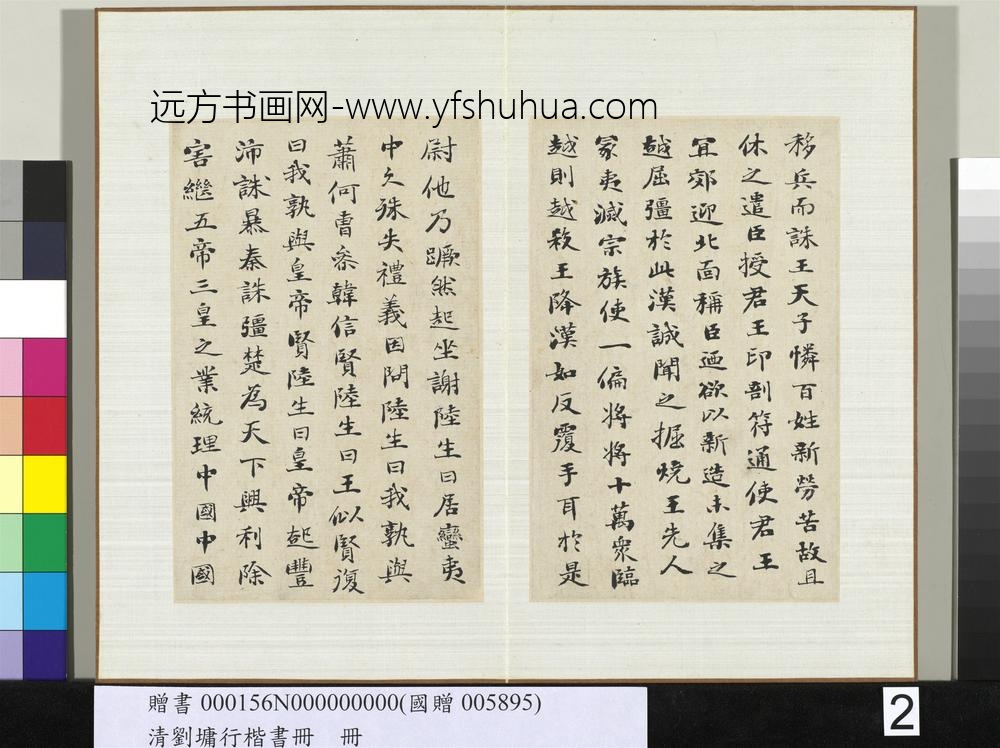 远方书画网-www.yfshuhua.com
移兵而誅王天子憐百姓新勞苦故且
休之遣臣授君王印剖符通使君王
宜郊迎北面稱臣迺欲以新造未集之
越屈彊於此漢誠聞之掘燒王先人
冢夷滅宗族使一偏将将十萬衆臨
越則越殺王降漢如反覆手耳於是
尉他乃蹶然起坐謝陸生曰居蠻夷
中久殊失禮義因問陸生曰我孰與
蕭何曹參韓信賢陸生曰王似賢復
曰我孰與皇帝賢陸生曰皇帝起豐
沛誅暴秦誅彊楚為天下興利除
害繼五帝三皇之業統理中國中國
贈書 000156N000000000(國贈 005895)
清劉墉行楷書冊 冊
2